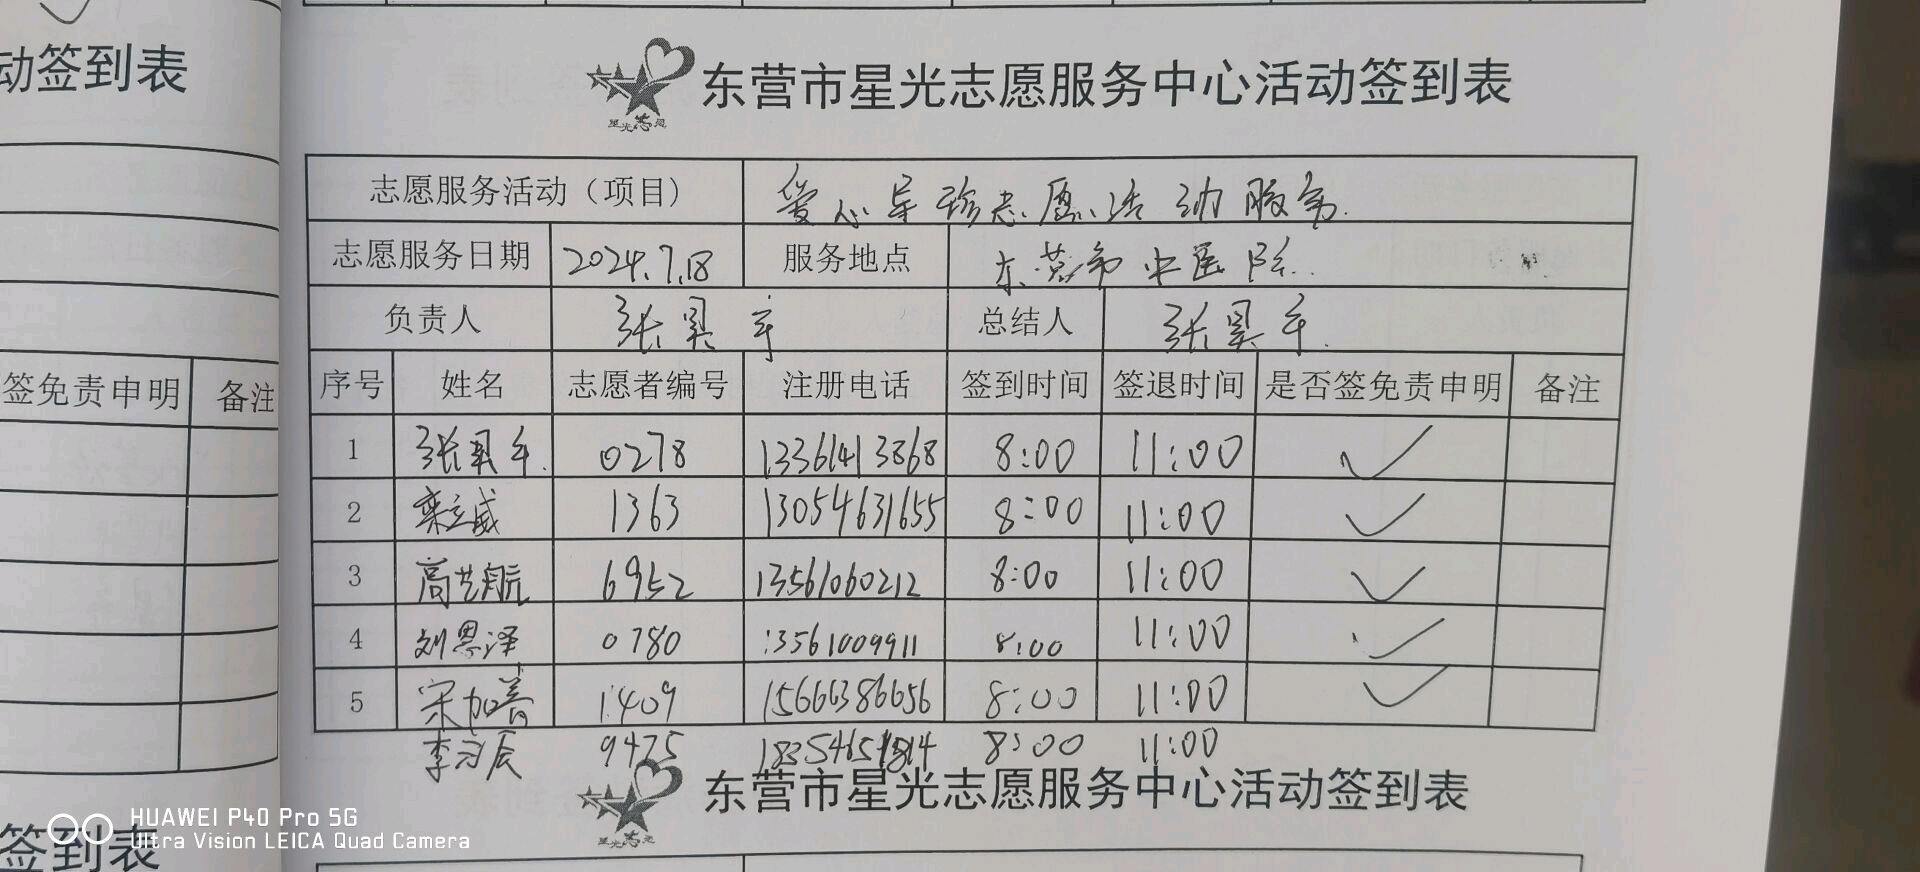 动签到表
签免责申明 备注
签到表
东营市星光志愿服务中心活动签到表
星光志愿
志愿服务活动（项目） 爱心导诊志愿活动服务
志愿服务日期 2024.7.18 服务地点 东营市中医院
负责人 张 总结人 张
序号 姓名 志愿者编号 注册电话 签到时间 签退时间 是否签免责申明 备注
1 张 0278 13361413868 8:00 11:00 ✓
2 栾立威 1363 13054631655 8:00 11:00 ✓
3 高艺航 6952 13561060212 8:00 11:00 ✓
4 刘恩泽 0780 13561009911 8:00 11:00 ✓
5 宋加善 1409 15666386656 8:00 11:00 ✓
李 辰 9475 8:00 11:00
东营市星光志愿服务中心活动签到表
星光志愿
HUAWEI P40 Pro 5G
Ultra Vision LEICA Quad Camera